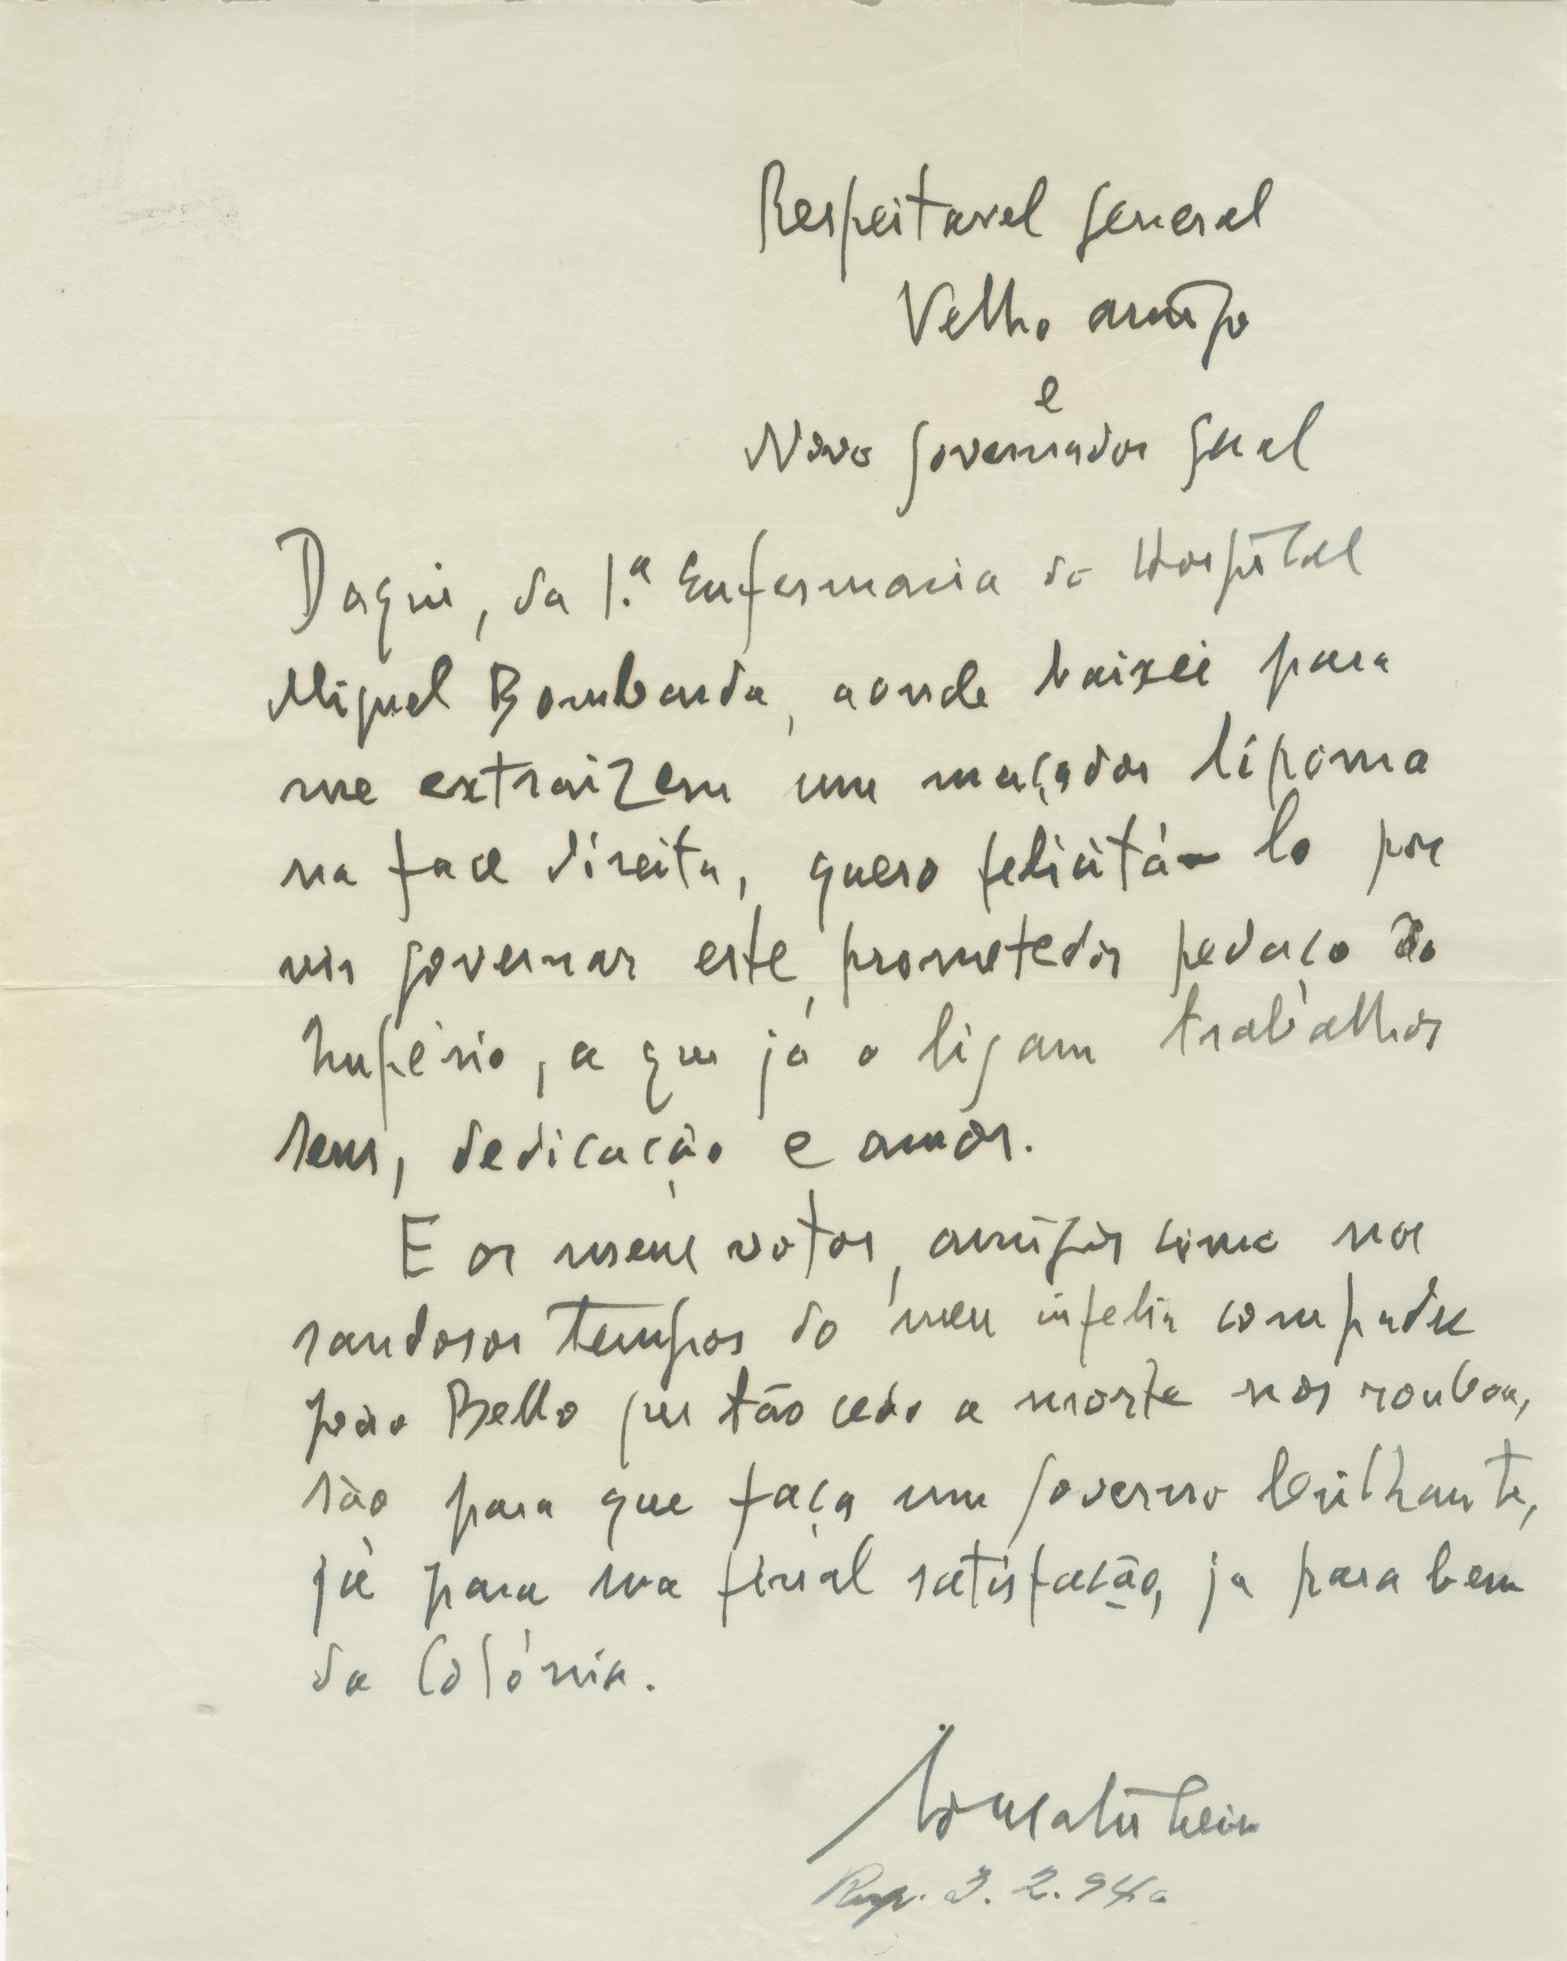 Respeitavel General
Velho amigo
e
Novo Governador Geral
Daqui, da 1.ª Enfermaria do Hospital
Miguel Bombarda, aonde baixei para
me extraizem um maçador lípoma
na face direita, quero felicitá-lo por
vir governar este, prometedor pedaço do
Império, a que já o ligam trabalhos
seus, dedicação e amor.
E os meus votos, amigos como nos
saudosos tempos do meu infeliz compadre
João Bello que tão cedo a morte nos roubou,
são para que faça um governo brilhante,
já para sua final satisfação, ja para bem
da Colónia.
Resp. 3. 2.